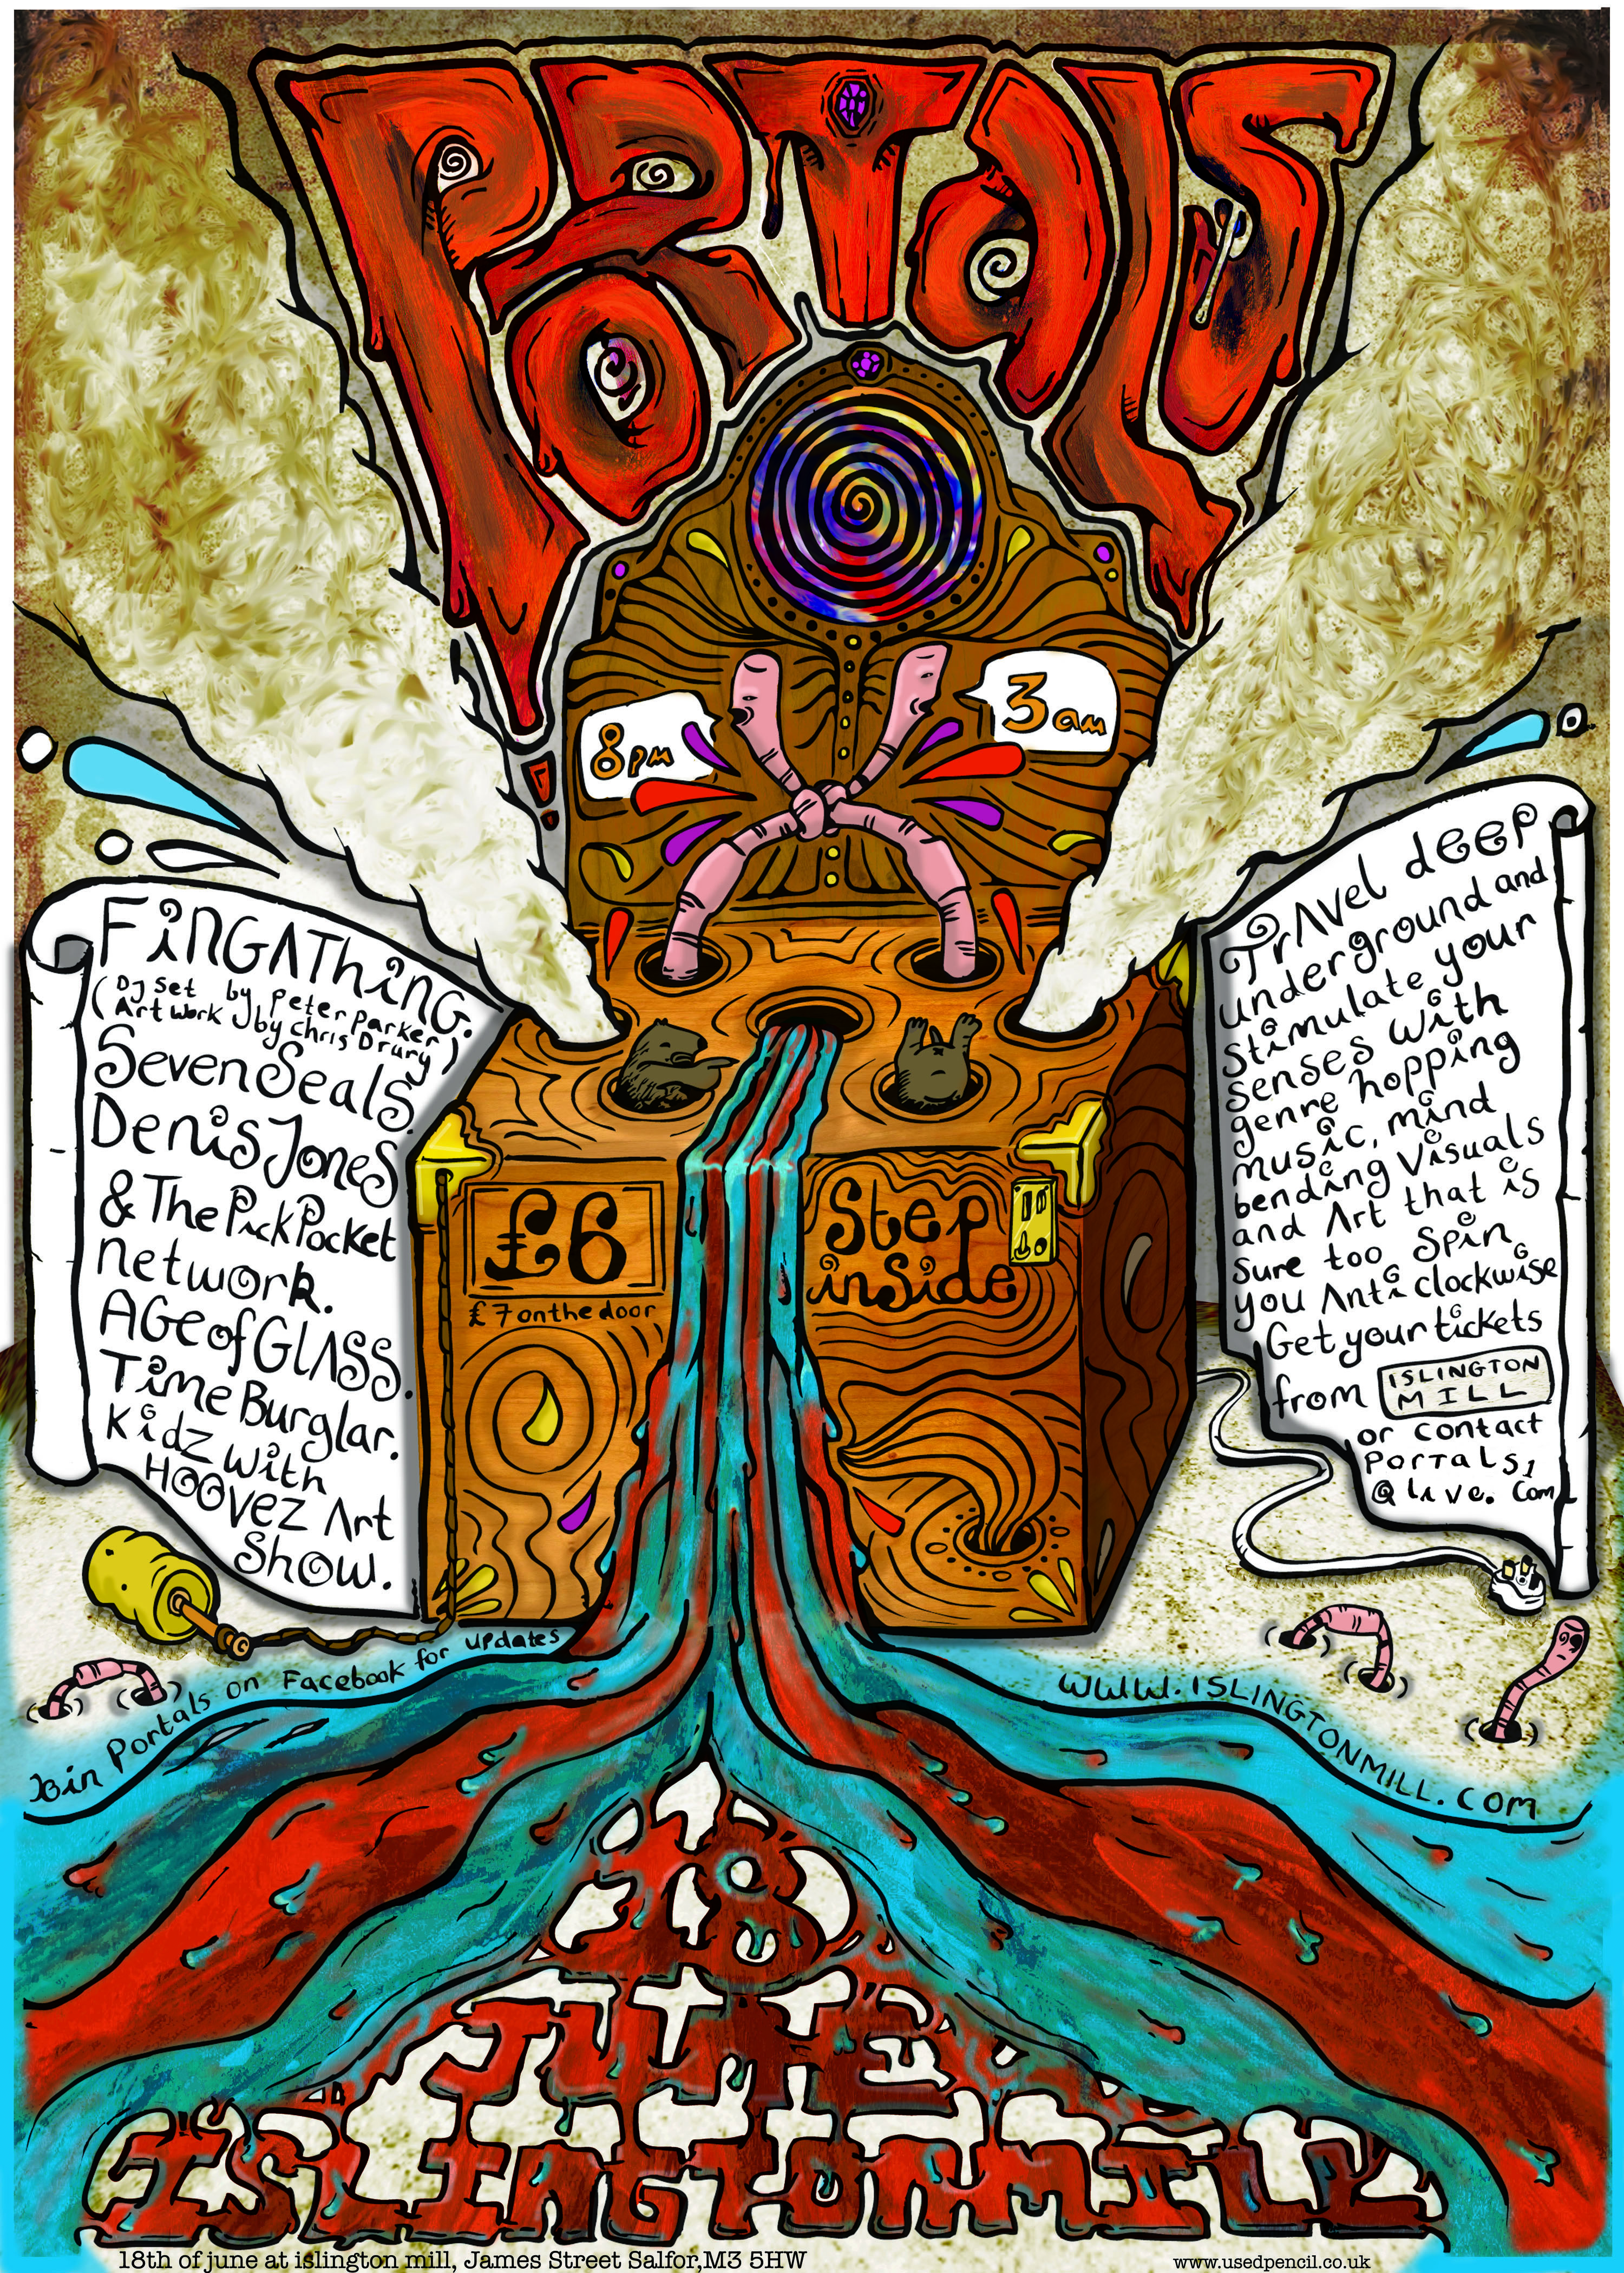 PORTALS
8pm
3am
FiNGAThiNG.
(DJ Set by Peter Parker
Art Work by Chris Drury)
Seven Seals.
Denis Jones
& The PickPocket
network.
AGe of GLASS.
Time Burglar.
Kidz with
HOOVEZ Art
Show.
Travel deep
underground and
Stimulate your
senses with
genre hopping
music, mind
bending Visuals
and Art that is
sure too Spin
you Anticlockwise
Get your tickets
from ISLINGTON
MILL
or contact
PORTALS1
@Live.Com
£6
£7 on the door
Step
inside
Join Portals on Facebook for updates
WWW.ISLINGTONMILL.COM
18
JUNE
ISLINGTONMILL
18th of june at islington mill, James Street Salfor,M3 5HW
www.usedpencil.co.uk